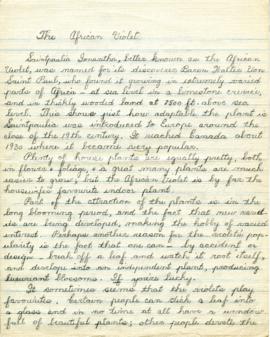 The African Violet
Saintpaulia Ionantha, better known as the African
Violet, was named for its discoverer Baron Walter Von
Saint Paul, who found it growing in extremely varied
parts of Africa - at sea level in a limestone crevice,
and in thickly wooded land at 2500 ft. above sea
level. This should just how adaptable the plant is
Saintpaulia was introduced to Europe around the
close of the 19th century. It reached Canada about
1930 where it became very popular.
Plenty of house plants are equally pretty, both
in flower & foliage, & a great many plants are much
easier to grow, but the African Violet is by far the
housewifes favourite indoor plant.
Part of the attraction of the plants is in the
long blooming period, and the fact that new
are being developed, making the hobby of varied
interest. Perhaps another reason for the violets pop-
ularity is the fact that one can - by accident or
design - break off a leaf and watch it root itself,
and develope into an independent plant, producing
luxuriant blossoms. If youre Lucky.
It sometimes seems that the violets play
favourites, certain people can stick a leaf into
a glass and in no time at all have a window
full of beautiful plants; other people devote the